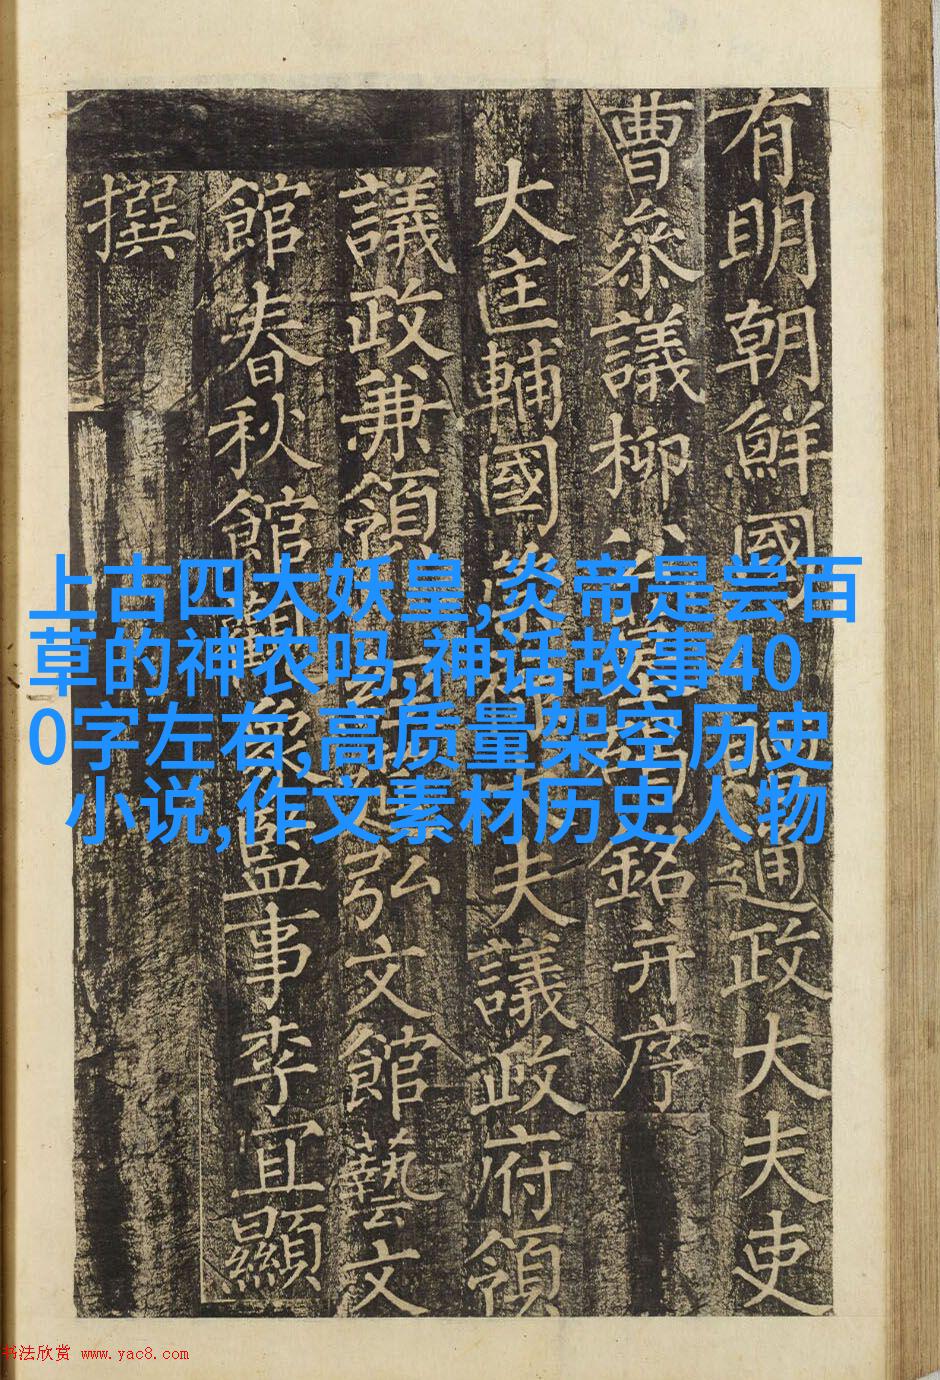 有明朝鮮國通政大夫吏
曹叅議柳公銘并序
大匡輔國崇夫議政府領
議政兼領弘文館藝文
館春秋館觀象監事李宜顯
撰
上古四大妖皇,炎帝是尝百
草的神农吗,神话故事40
0字左右,高质量架空历史
小说,作文素材历史人物
书法欣赏 www.yac8.com